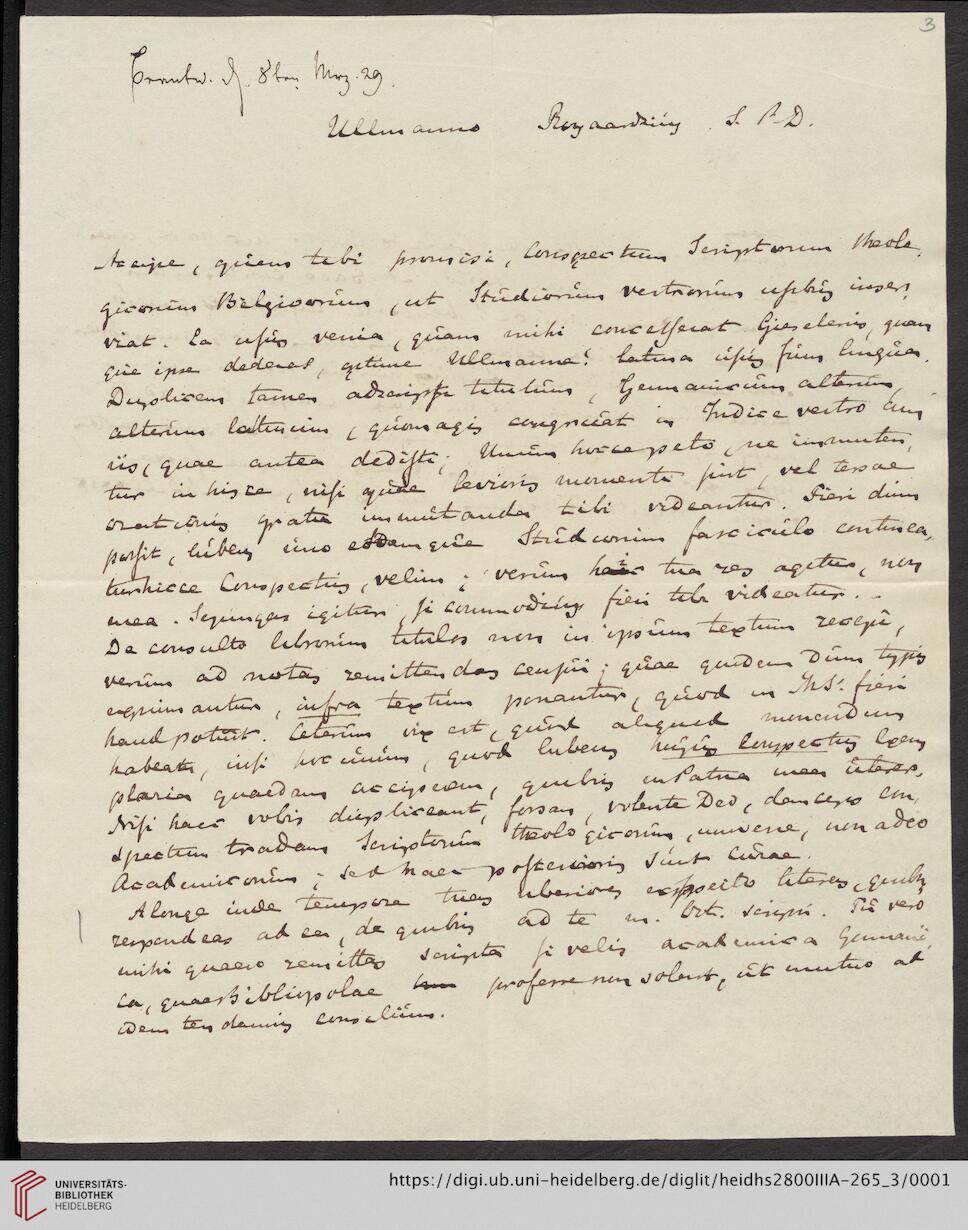 3
d. 8ten Mrz. 29.
Ullmanno Royaardsius S. P. D.
Accipe, quem tibi promisi, Conspectum Scriptorum theolo-
gicorum Belgicorum, ut Studiorum vestrorum usibus inser-
viat. Ea usus venia, quam mihi concesserat Gieselerus, quam
que ipse dederas, optime Ullmanne! latina usus sum lingua.
Duplicem tamen adscripsi titulum, Germanicum alterum,
alterum latinum, quo magis congruat in Indice vestro cum
iis, quae antea dedisti; Unum hocce peto, ne immuten-
tur in hisce, nisi quae levioris momenti sint, vel tersae
orationis gratia immutanda tibi videantur. Fieri dum
possit, lubens uno eodemque Studiorum fasciculo continea-
tur hicce Conspectus, velim; verum tua res agitur, non
mea. Sejungas igitur, si commodius fieri tibi videatur. -
De consulto librorum titulos non in ipsum textum recepi,
verum ad notas remittendas censui; quae quidem dum typis
exprimantur, infra textum ponantur, quod in MS. fieri
haud potuit. Ceterum vix est, quod aliquid monendum
habeam, nisi hoc unum, quod lubens hujus Conspectus Exem-
plaria quaedam accipiam, quibus in Patria mea utar.
Nisi haec vobis displiceant, forsan, volente Deo, deinceps con-
spectum tradam Scriptorum theologicorum, universe, non adeo
Academicorum; sed haec posterioris sunt curae.
A longo inde tempore tuas uberiores exspecto literas, quibus
respondeas ad ea, de quibus ad te m. Oct. scripsi. Tu vero
mihi quaeso remittas scripta si velis academica Germani-
ca, quae Bibliopolae proferre non solent, ut mutuo ad
idem tendamus consilium.
UNIVERSITÄTS-
BIBLIOTHEK
HEIDELBERG
https://digi.ub.uni-heidelberg.de/diglit/heidhs2800IIIA-265_3/0001